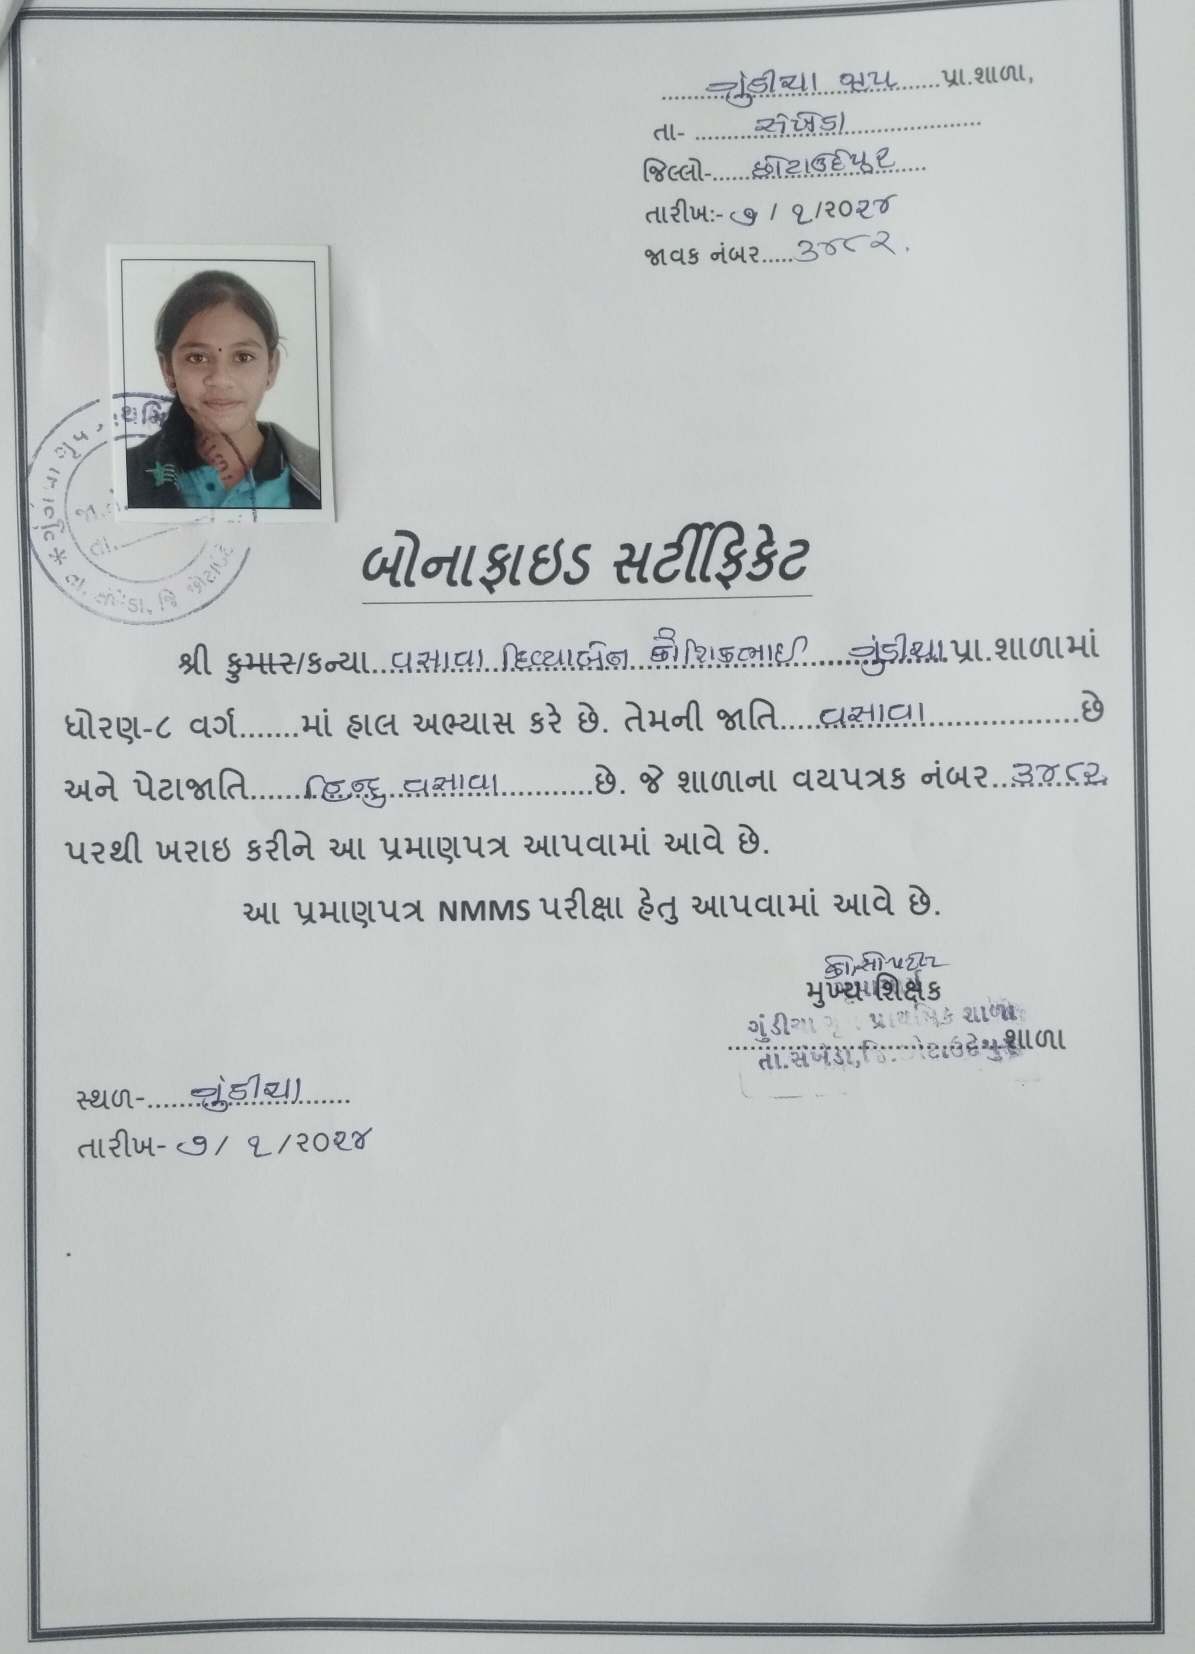 ગુંડીચા ગૃપ પ્રા.શાળા,
તા- સંખેડા
જિલ્લો- છોટાઉદેપુર
તારીખ:- ૭ / ૧ /૨૦૨૪
જાવક નંબર..... ૩૪૮૨.
બોનાફાઇડ સર્ટીફિકેટ
શ્રી કુમાર/કન્યા..વસાવા દિવ્યાબેન કૌશિકભાઈ ગુંડીચા પ્રા.શાળામાં
ધોરણ-૮ વર્ગ.......માં હાલ અભ્યાસ કરે છે. તેમની જાતિ....વસાવા...............છે
અને પેટાજાતિ......હિન્દુ વસાવા..........છે. જે શાળાના વયપત્રક નંબર..૩૪૮૨
પરથી ખરાઇ કરીને આ પ્રમાણપત્ર આપવામાં આવે છે.
આ પ્રમાણપત્ર NMMS પરીક્ષા હેતુ આપવામાં આવે છે.
મુખ્ય શિર્ક્ષક
ગુંડીચા પ્રાથમિક શાળા
શાળા
તા.સંખેડા, જિ.છોટાઉદેપુર
સ્થળ-......ગુંડીચા......
તારીખ- ૭/ ૧ /૨૦૨૪